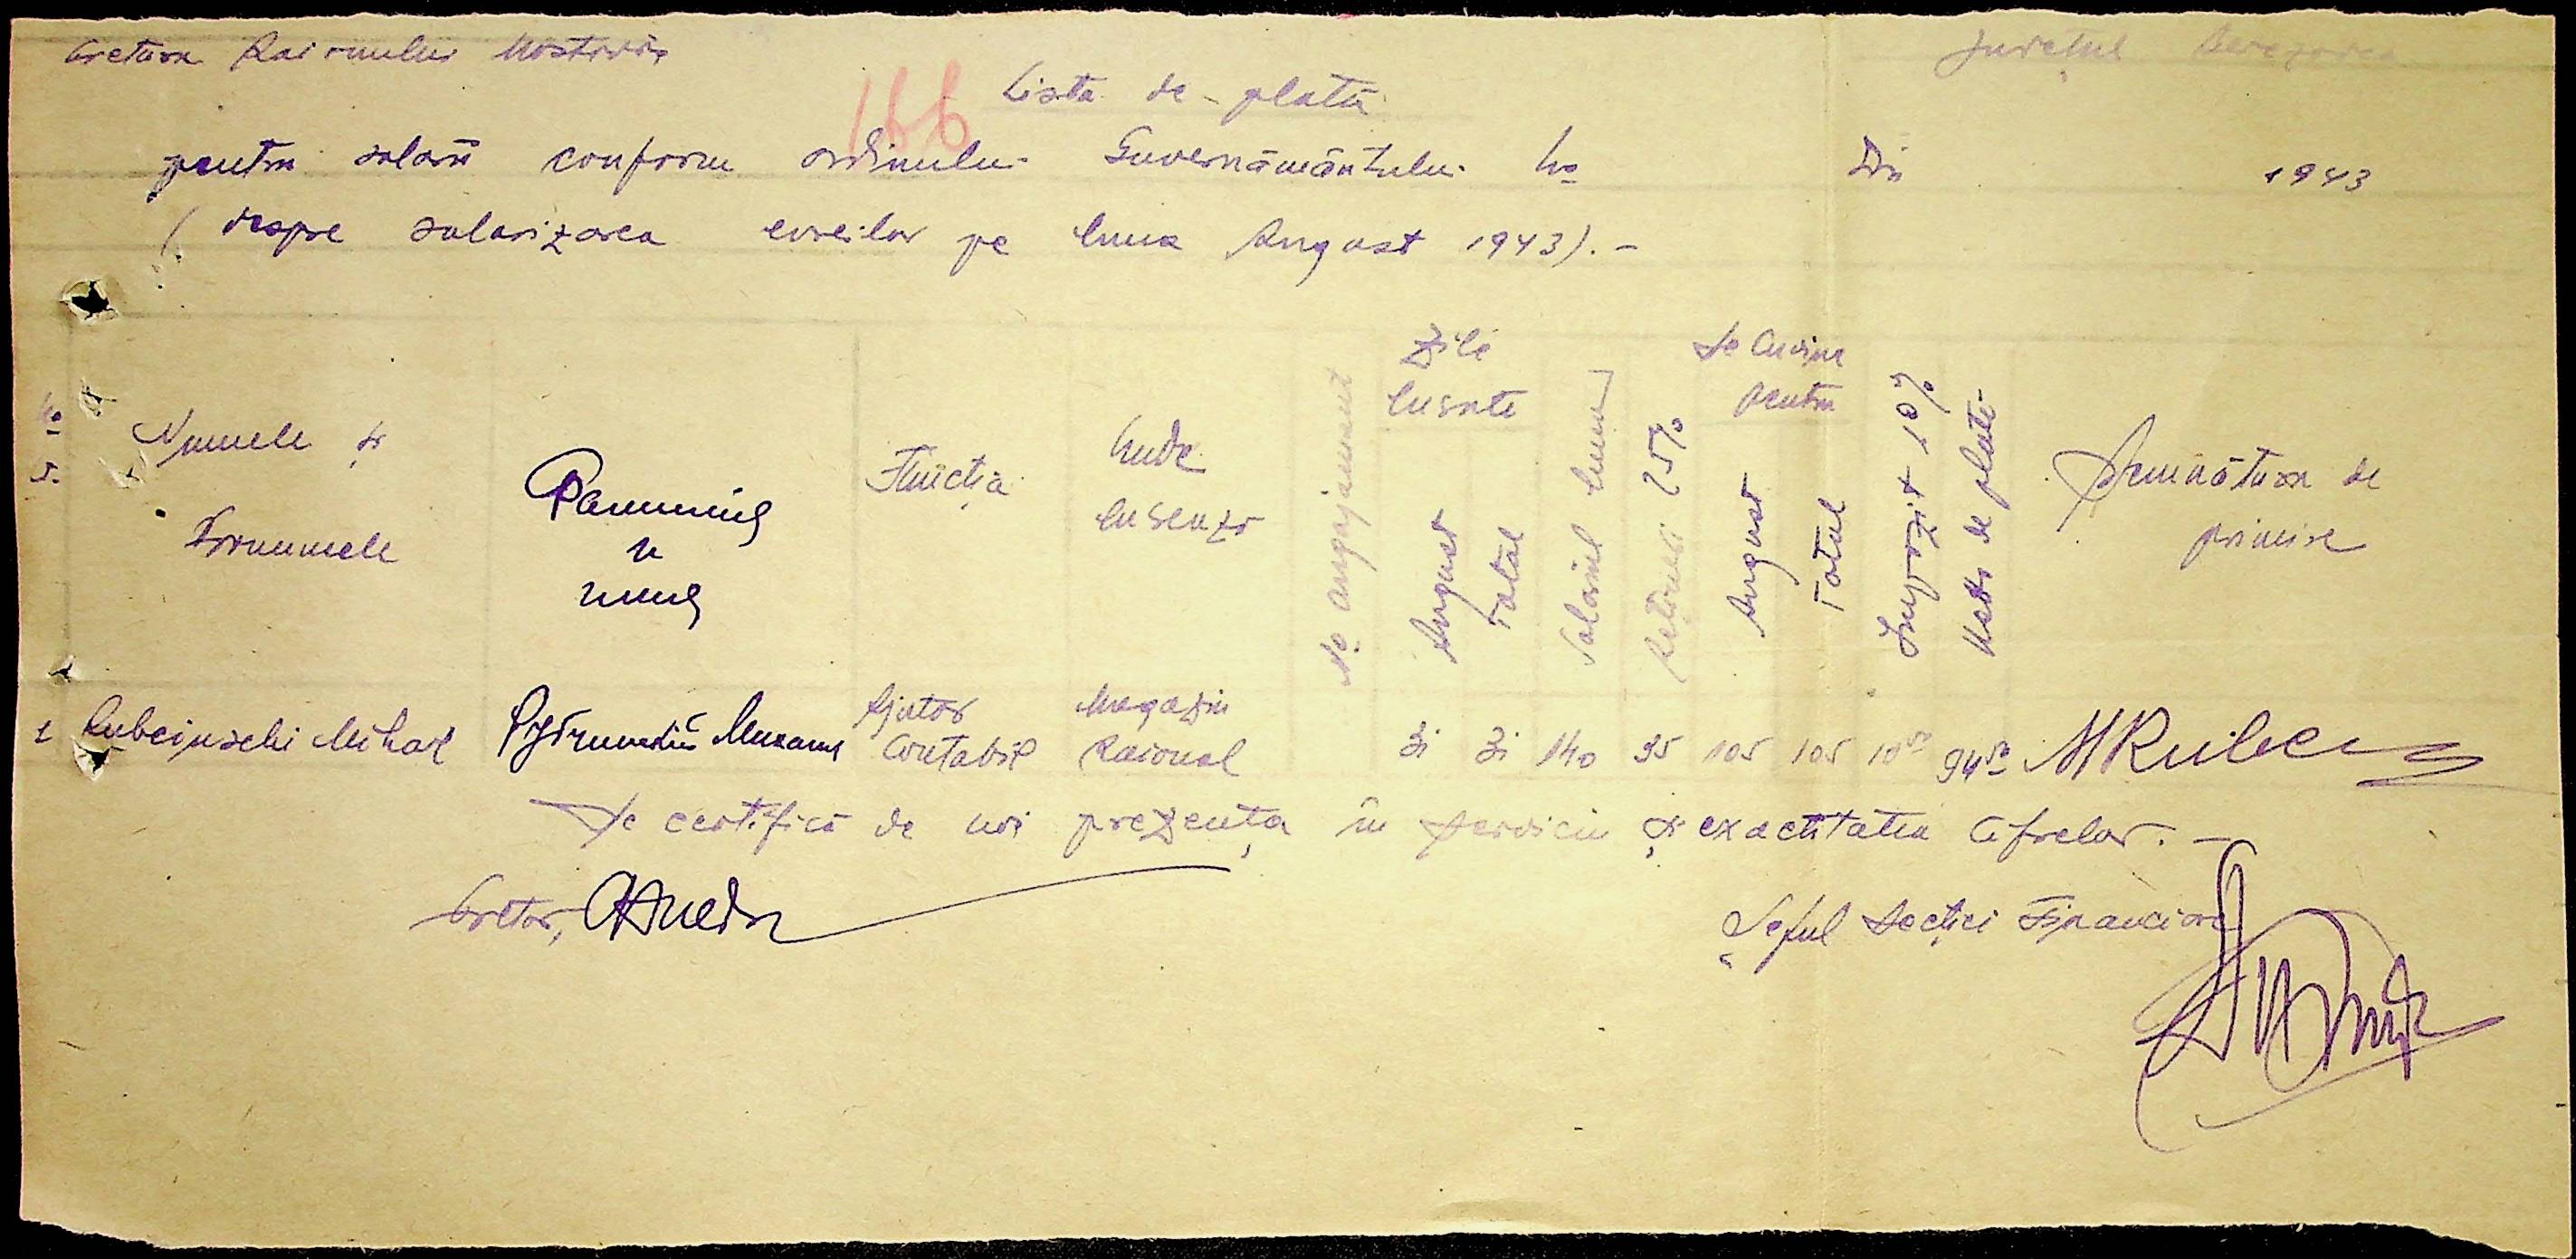 Pretura Raionului Mostovoi
Județul Berezovca
166
Lista de plată
pentru salarii conform ordinului Guvernământului No Din 1943
(despre salarizarea evreilor pe luna August 1943). -
No
Numele și
Pronumele
Фамилия
и
имя
Funcția
Unde
lucrează
No angajament
Zile
lucrate
August
Total
Salariul lunar
Rețineri 25%
Se cuvine
pentru
August
Total
Impozit 10%
Netto de plată
Semnătura de
primire
1 Rubcinschi Mihail Рубчинский Михаил Ajutor Contabil Magazin Raional 31 31 140 35 105 105 10 50 94 50 MRubc
Se certifică de noi prezența în serviciu și exactitatea cifrelor. -
Pretor,
Șeful Secției Financiare